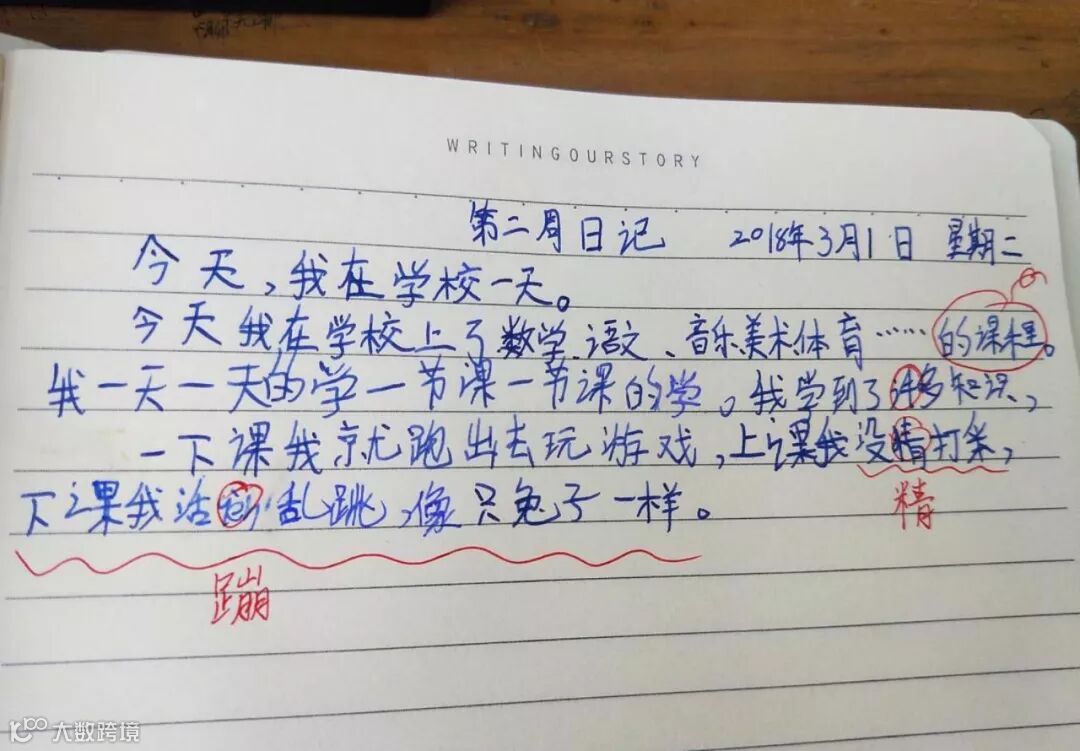 WRITINGOURSTORY
第二周日记 2018年3月1日 星期二
今天,我在学校一天。
今天我在学校上了数学、语文、音乐、美术、体育……的课程。
我一天一天的学一节课一节课的学。我学到了许多知识,
一下课我就跑出去玩游戏,上课我没精打采,
精
下课我活乱跳,像只兔子一样。
蹦
大数跨境